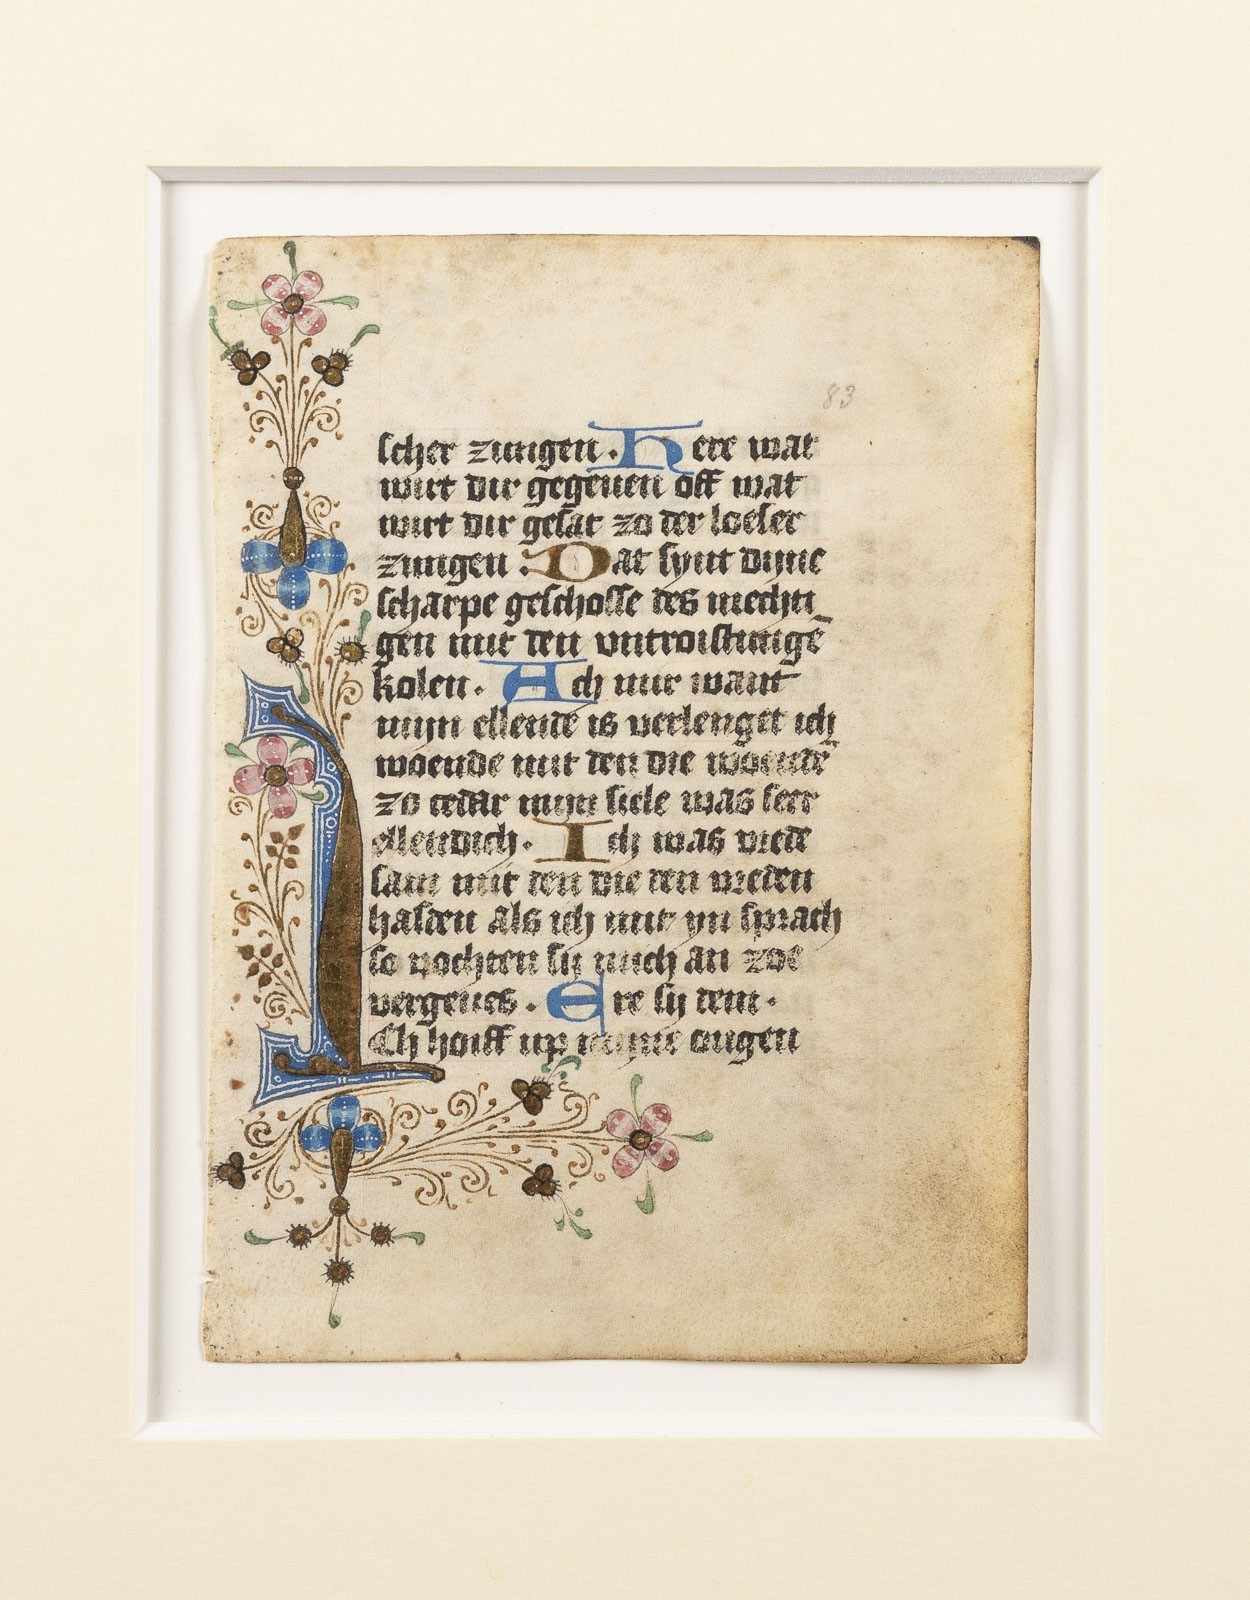 83
scher zungen. Here wat
wirt dir gegeuen off wat
wirt dir gesat zo der loeser
zungen. Dat synt dyne
scharpe geschosse des mechti
gen mit den vntroistinge̅
kolen. Ach mir want
myn ellende is verlenget ich
woende mit den die woende
zo cedar myn siele was seer
ellendich. Ich was vrede
sam mit den die den vreden
hasden als ich mit yn sprach
so vochten sy mich an zoe
vergeues. Ere sy dem.
Ich hoiff up myne ougen